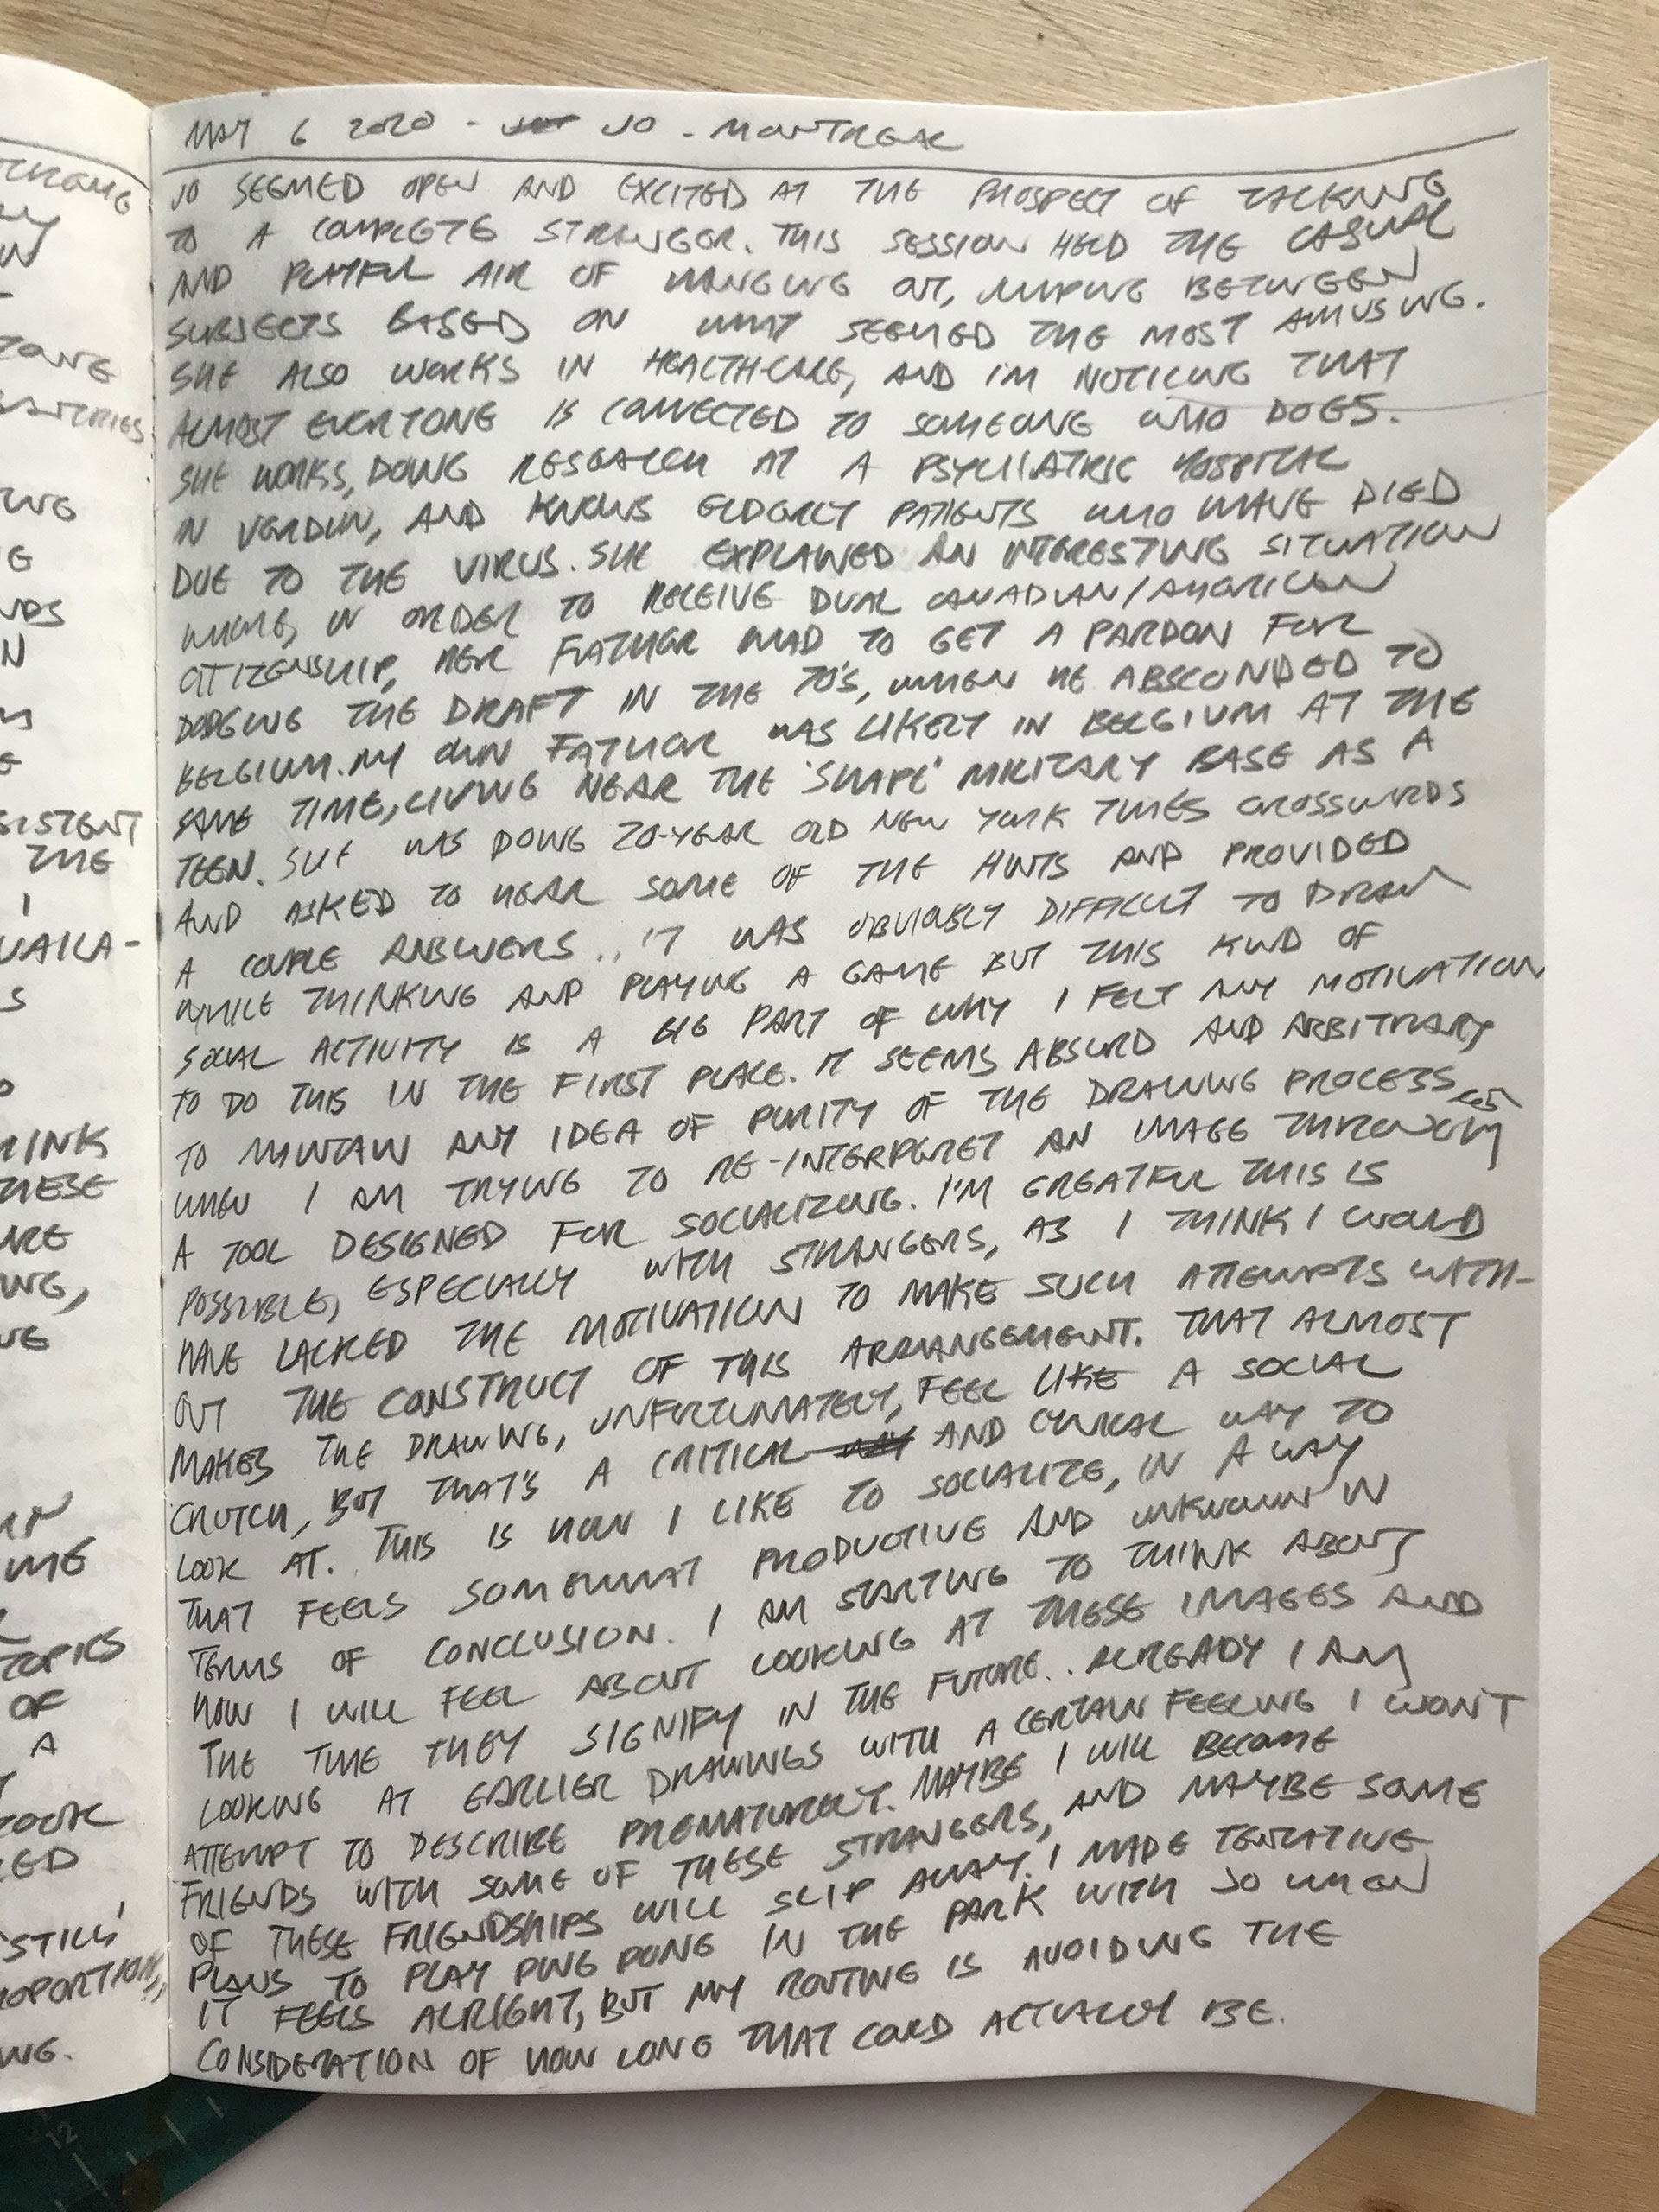 MAY 6 2020 - JO - MONTREAL
JO SEEMED OPEN AND EXCITED AT THE PROSPECT OF TALKING
TO A COMPLETE STRANGER. THIS SESSION HELD THE CASUAL
AND PLAYFUL AIR OF HANGING OUT, JUMPING BETWEEN
SUBJECTS BASED ON WHAT SEEMED THE MOST AMUSING.
SHE ALSO WORKS IN HEALTH-CARE, AND I'M NOTICING THAT
ALMOST EVERYONE IS CONNECTED TO SOMEONE WHO DOES.
SHE WORKS, DOING RESEARCH AT A PSYCHIATRIC HOSPITAL
IN VERDUN, AND KNOWS ELDERLY PATIENTS WHO HAVE DIED
DUE TO THE VIRUS. SHE EXPLAINED AN INTERESTING SITUATION
WHERE, IN ORDER TO RECEIVE DUAL CANADIAN/AMERICAN
CITIZENSHIP, HER FATHER HAD TO GET A PARDON FOR
DODGING THE DRAFT IN THE 70'S, WHEN HE ABSCONDED TO
BELGIUM. MY OWN FATHER WAS LIKELY IN BELGIUM AT THE
SAME TIME, LIVING NEAR THE 'SHAPE' MILITARY BASE AS A
TEEN. SHE WAS DOING 20-YEAR OLD NEW YORK TIMES CROSSWORDS
AND ASKED TO HEAR SOME OF THE HINTS AND PROVIDED
A COUPLE ANSWERS.. IT WAS OBVIOUSLY DIFFICULT TO DRAW
WHILE THINKING AND PLAYING A GAME BUT THIS KIND OF
SOCIAL ACTIVITY IS A BIG PART OF WHY I FELT ANY MOTIVATION
TO DO THIS IN THE FIRST PLACE. IT SEEMS ABSURD AND ARBITRARY
TO MAINTAIN ANY IDEA OF PURITY OF THE DRAWING PROCESS
WHEN I AM TRYING TO RE-INTERPERET AN IMAGE THROUGH
A TOOL DESIGNED FOR SOCIALIZING. I'M GREATFUL THIS IS
POSSIBLE, ESPECIALLY WITH STRANGERS, AS I THINK I WOULD
HAVE LACKED THE MOTIVATION TO MAKE SUCH ATTEMPTS WITH-
OUT THE CONSTRUCT OF THIS ARRANGEMENT. THAT ALMOST
MAKES THE DRAWING, UNFORTUNATELY, FEEL LIKE A SOCIAL
CRUTCH, BUT THAT'S A CRITICAL AND CYNICAL WAY TO
LOOK AT. THIS IS HOW I LIKE TO SOCIALIZE, IN A WAY
THAT FEELS SOMEWHAT PRODUCTIVE AND UNKNOWN IN
TERMS OF CONCLUSION. I AM STARTING TO THINK ABOUT
HOW I WILL FEEL ABOUT LOOKING AT THESE IMAGES AND
THE TIME THEY SIGNIFY IN THE FUTURE.. ALREADY I AM
LOOKING AT EARLIER DRAWINGS WITH A CERTAIN FEELING I WON'T
ATTEMPT TO DESCRIBE PREMATURELY. MAYBE I WILL BECOME
FRIENDS WITH SOME OF THESE STRANGERS, AND MAYBE SOME
OF THESE FRIENDSHIPS WILL SLIP AWAY. I MADE TENTATIVE
PLANS TO PLAY PING PONG IN THE PARK WITH JO WHEN
IT FEELS ALRIGHT, BUT MY ROUTINE IS AVOIDING THE
CONSIDERATION OF HOW LONG THAT COULD ACTUALLY BE.